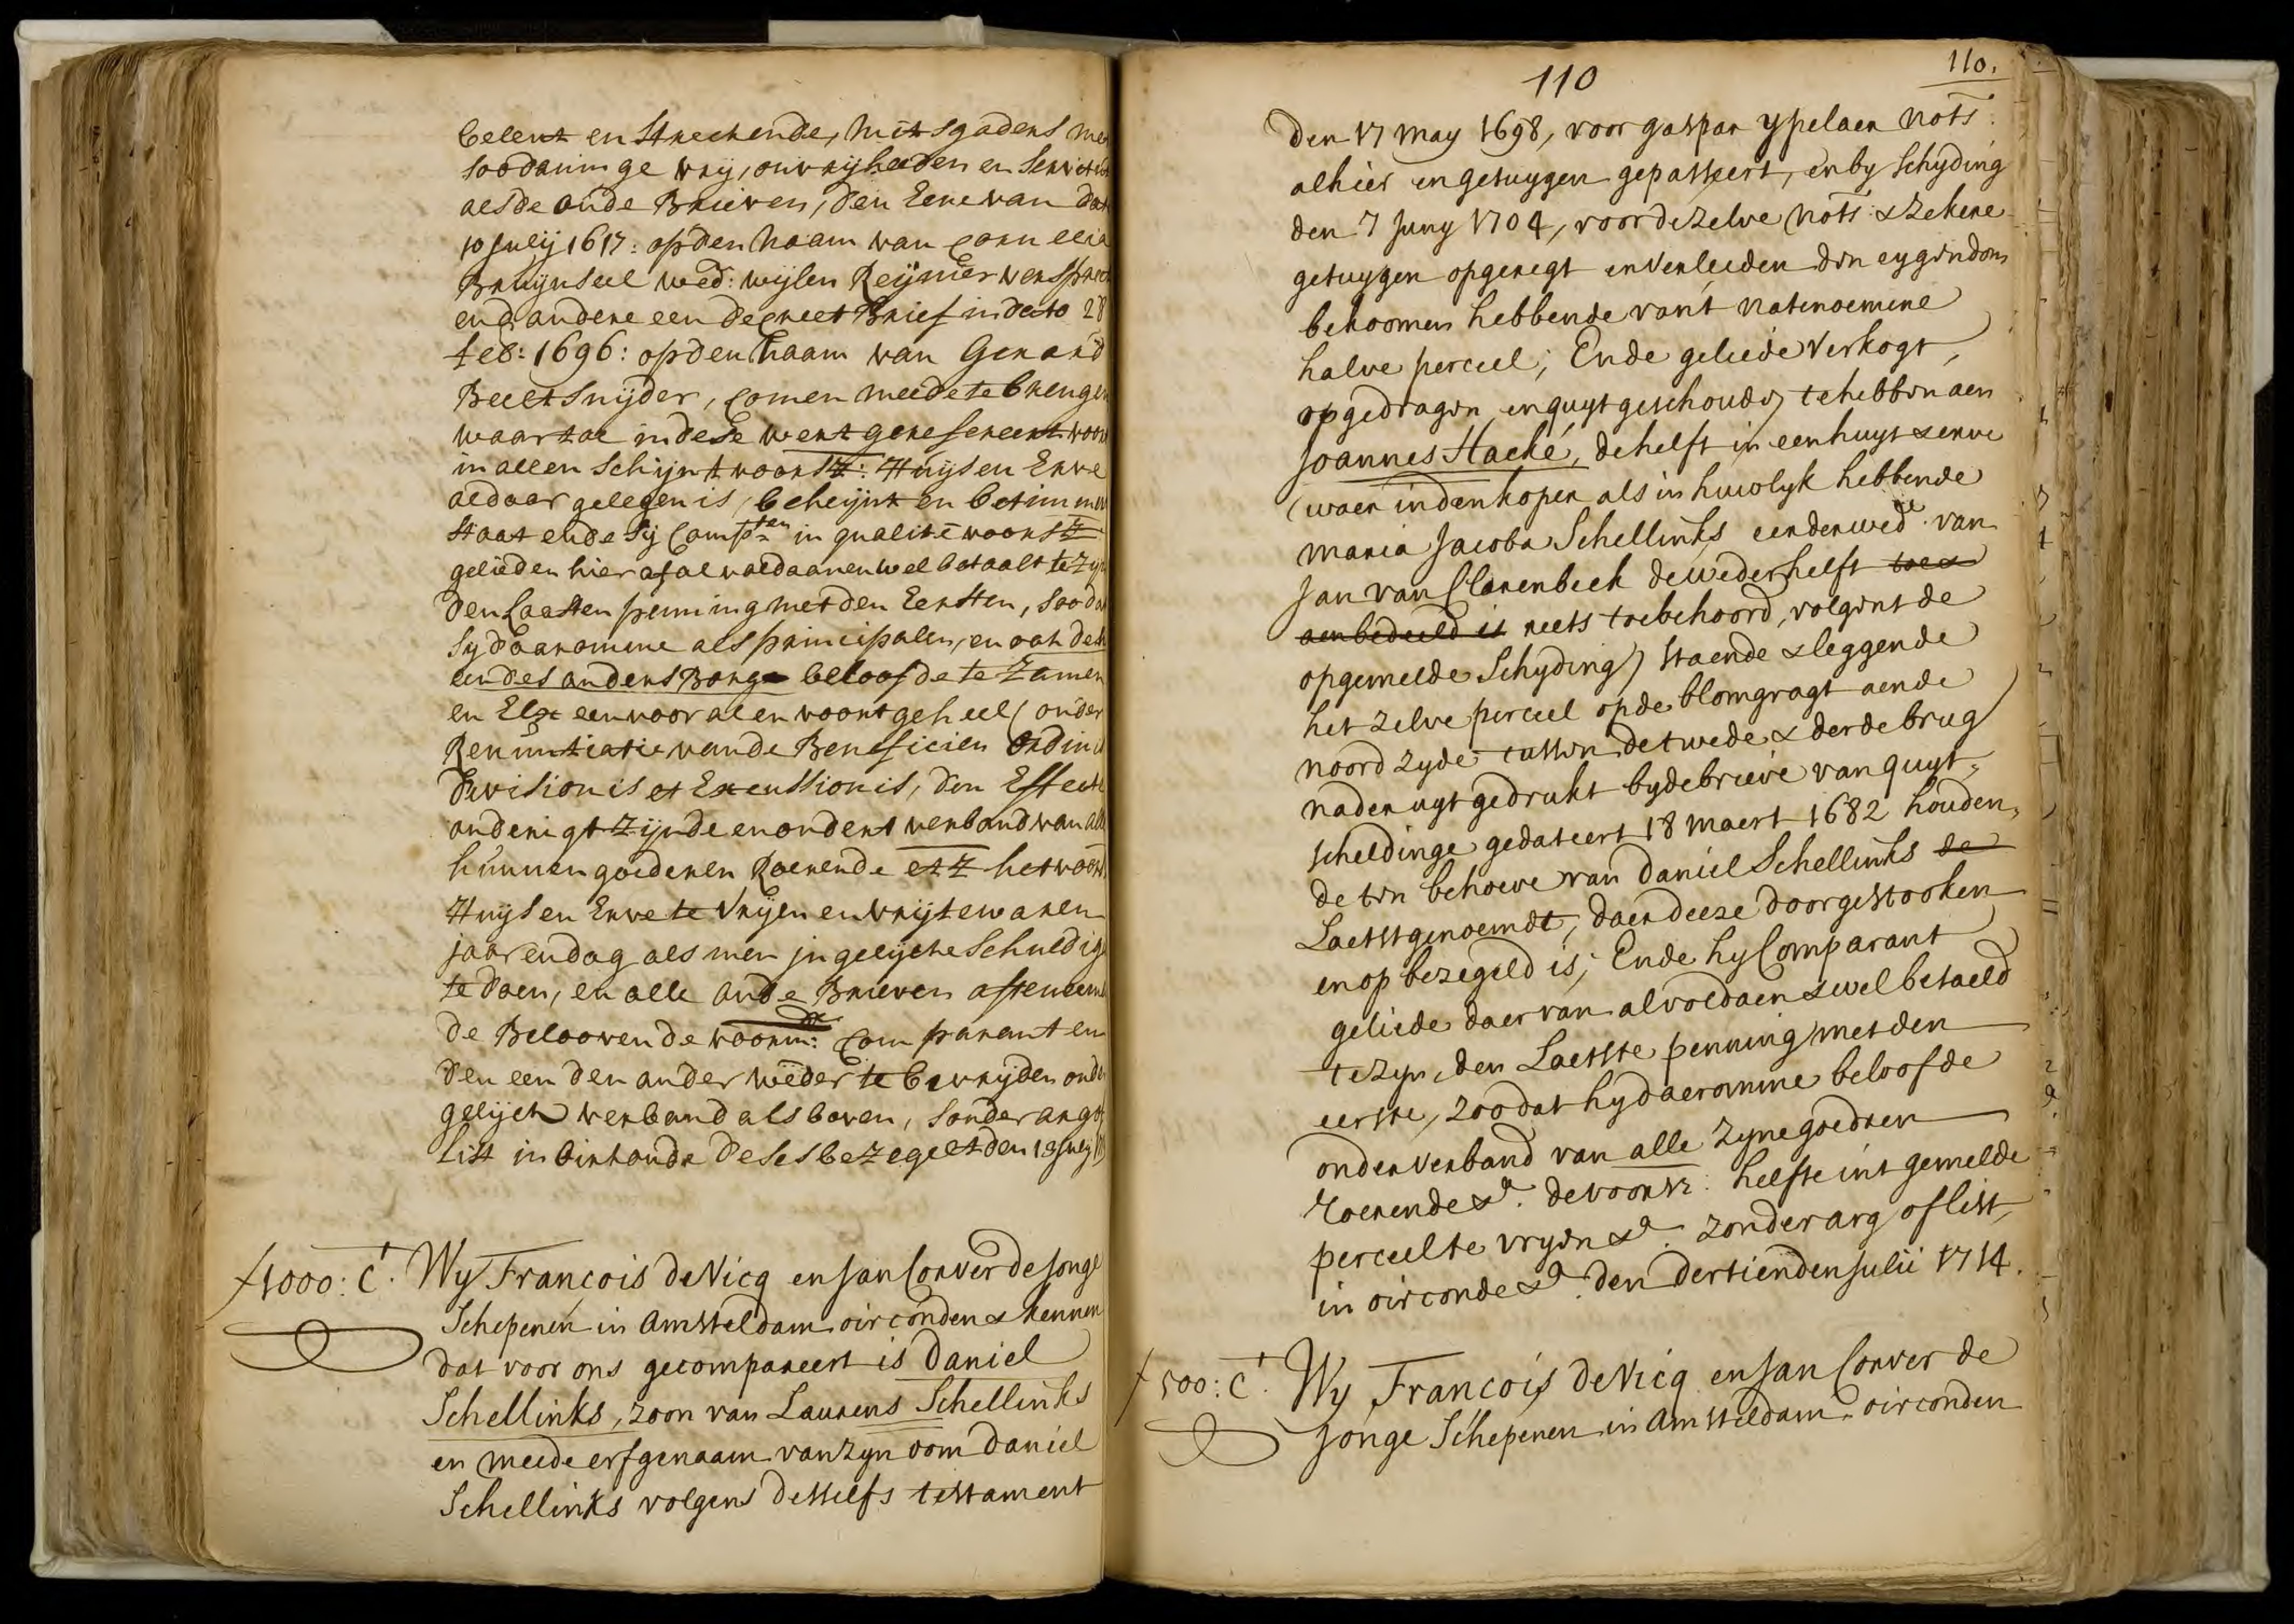 belent en Streckende, mitsgaders me
soodaninge vrij, onvrijheeden en Servitut
als de oude Brieven, den Eene van dat
10 Julij 1617: op den Naam van Cornelia
Bruijnseel wed: wijlen Reijnier
end' andere een decreet Brief in dato 28
feb: 1696: op den Naam van Gerard
Beeltsnijder, Comen meede te brengen
waar toe in dese wert gerefereert voor
in allen Schijn 't voorsz: Huijs en Erve
aldaar gelegen is, beheijnt en betimmer
Staat ende Sij Compten in qualite voorsz
gelieden hier af al voldaan en wel betaalt te Zijn
den Laasten penning met den Eersten, Soo dat
Sy daaromme als principalen, en ook
een des anders Borge beloofde te Zamen
en Elx een voor al en voort geheel (onder
Renuntiatie van de Beneficien ordinis
divisionis et Excussionis, den Effecte
onderigt Zijnde en ondert verband van alle
hunnen goederen Roerende etz het voors
Huijs en Erve te Vrijen en Vrij te waren
jaar en dag als men in gelijcke Schuldig
te doen, en alle oude Brieven afteneemen
de Beloovende voorn: Comparanten
den een den ander weder te bevrijden onder
gelijck verband als boven, Sonder arg of
List in Oirkonde deses bezegelt den 13 July
f 1000: Ct. Wy Francois de Vicq en Jan Corver de Jonge
Schepenen in Amsteldam oirconden & kennen
dat voor ons gecompareert is Daniel
Schellinks, zoon van Laurens Schellinks
en meede erfgenaam van zyn oom Daniel
Schellinks volgens desselfs testament
110
110.
den 17 may 1698, voor gaspar ypelaer nots
alhier en getuygen gepasseert, en by Schyding
den 7 Juny 1704, voor de zelve nots: & zekere
getuygen opgeregt en verleeden den eygendom
bekoomen hebbende van 't natenoemene
halve perceel; Ende geliede verkogt,
opgedragen en quytgeschouden te hebben aen
Joannes Hacké, de helft in een huys & erve
(waer in den koper als in huwlyk hebbende
maria Jacoba Schellinks eerder wede. van
Jan van Clarenbeek de wederhelft toe &
aenbedeeld is reets toebehoord, volgens de
opgemelde Schyding) staende & leggende
het zelve perceel op de blomgragt aen de
noord zyde tussen de twede & derde brug
nader uytgedrukt by de brieve van quyt-
scheldinge gedateert 18 maert 1682 houden-
de ten behoeve van Daniel Schellinks de
Laetstgenoemdt, daer deeze doorgestooken
en op bezegeld is; Ende hy Comparant
geliede daer van al voldaen & wel betaeld
te zyn, den Laetste penning met den
eerste, zoo dat hy daeromme beloofde
onder verband van alle zyne goedren
roerende &a. de voorsz: helfte int gemelde
perceel te vryen &a. zonder arg of list,
in oirconde &a. den dertienden Julii 1714.
f 500: Ct. Wy Francois de Vicq en Jan Corver de
Jonge Schepenen in Amsteldam oirconden